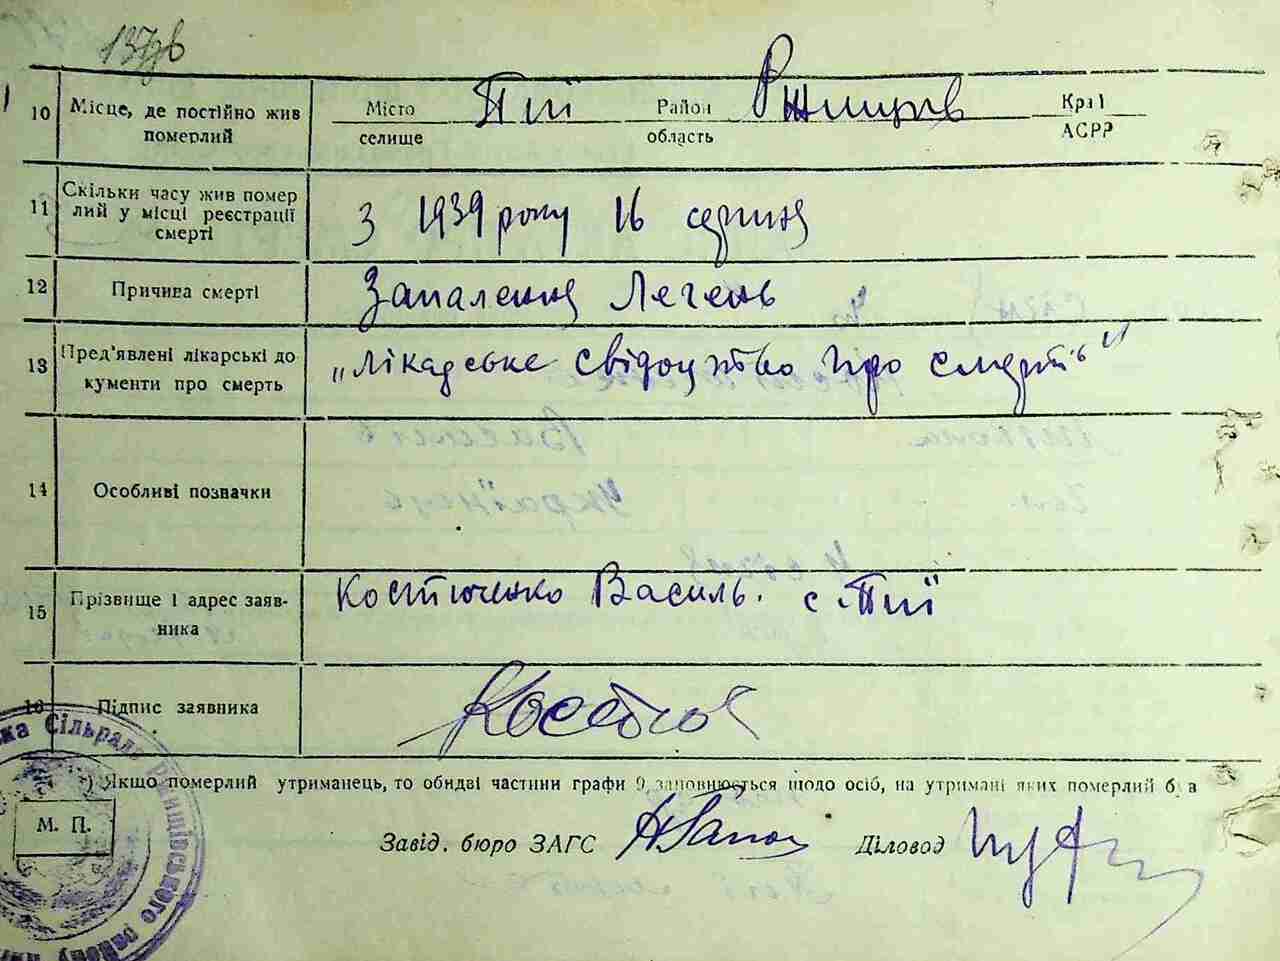 137зв
10 Місце, де постійно жив померлий Місто селище Пії Район область Ржищів Край АСРР
11 Скільки часу жив помер
лий у місці реєстрації
смерті
З 1939 року 16 серпня
12 Причина смерті Запалення Легень
13 Пред'явлені лікарські до
кументи про смерть
„Лікарське свідоцтво про смерть"
14 Особливі позначки
15 Прізвище і адрес заяв-
ника
Костюченко Василь. с. Пії
16 Підпис заявника
) Якщо померлий утриманець, то обидві частини графи 9, заповнюється щодо осіб, на утримані яких померлий був
М. П.
Завід. бюро ЗАГС Діловод
Сільрада
району